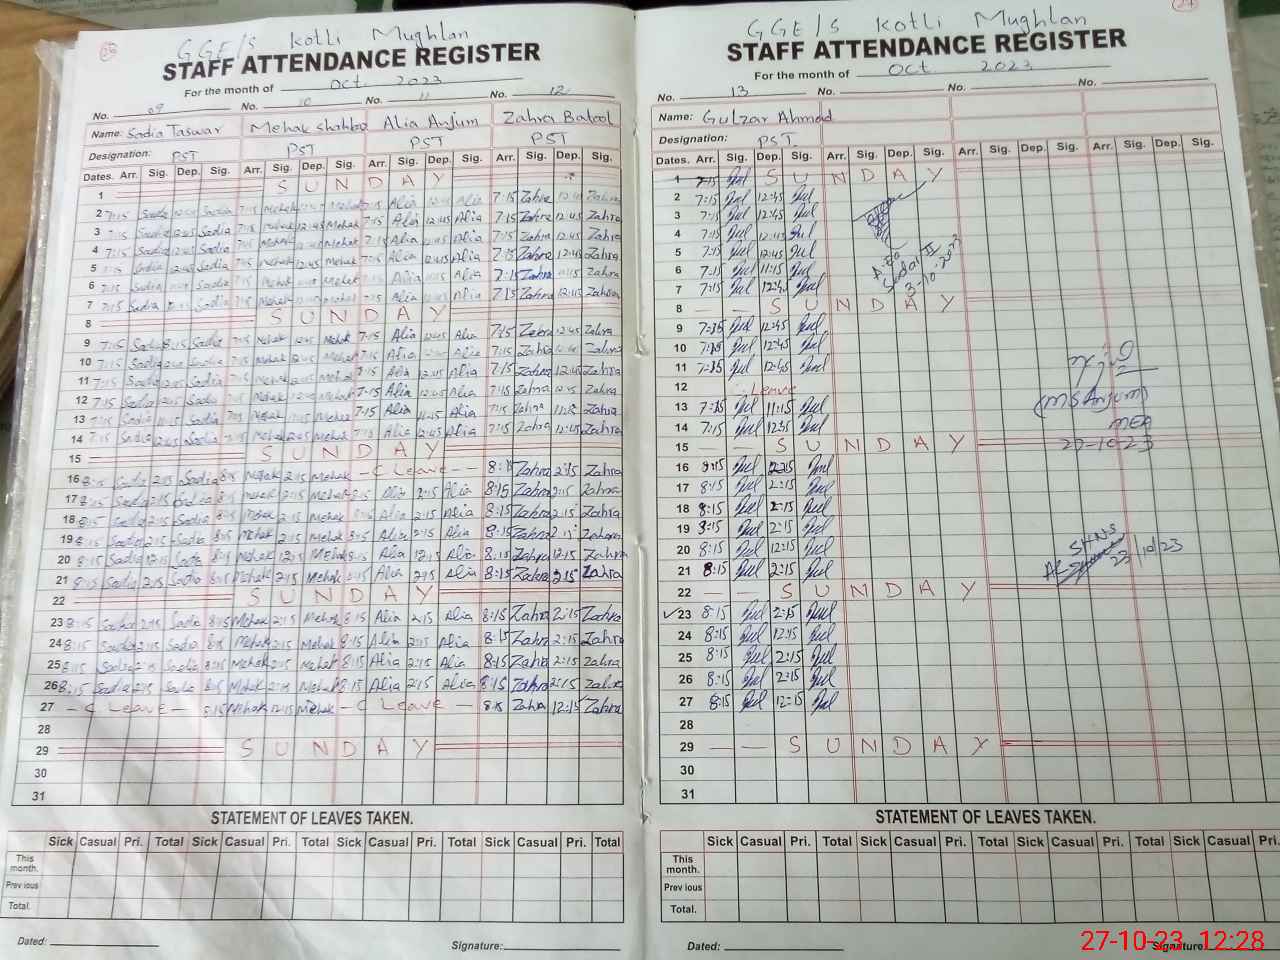 26
GGE/S Kotli Mughlan
STAFF ATTENDANCE REGISTER
For the month of Oct. 2023
No. 09 No. 10 No. 11 No. 12
Name: Sadia Taswar Mehak Alia Anjum Zahra Batool
Designation: PST PST PST PST
Dates. Arr. Sig. Dep. Sig. Arr. Sig. Dep. Sig. Arr. Sig. Dep. Sig. Arr. Sig. Dep. Sig.
1 SUNDAY
2 7:15 Sadia Sadia 7:15 Mehak Mehak 7:15 Alia Alia 7:15 Zahra 12:45 Zahra
3 7:15 Sadia 12:45 Sadia 7:15 Mehak 12:45 Mehak 7:15 Alia 12:45 Alia 7:15 Zahra 12:45 Zahra
4 7:15 Sadia 12:45 Sadia 7:15 Mehak Mehak 7:15 Alia 12:45 Alia 7:15 Zahra 12:45 Zahra
5 Sadia 12:45 Sadia 7:15 Mehak 12:45 Mehak 7:15 Alia 12:45 Alia 7:15 Zahra 12:45 Zahra
6 7:15 Sadia Sadia 7:15 Mehak Mehak 7:15 Alia Alia 7:15 Zahra 11:15 Zahra
7 7:15 Sadia Sadia 7:15 Mehak Mehak 7:15 Alia Alia 7:15 Zahra 12:45 Zahra
8 SUNDAY
9 7:15 Sadia Sadia 7:15 Mehak 12:45 Mehak 7:15 Alia 12:45 Alia 7:15 Zahra 12:45 Zahra
10 7:15 Sadia Sadia 7:15 Mehak Mehak 7:15 Alia Alia 7:15 Zahra Zahra
11 7:15 Sadia 12:45 Sadia 7:15 Mehak 12:45 Mehak 7:15 Alia 12:45 Alia 7:15 Zahra 12:45 Zahra
12 7:15 Sadia 12:45 Sadia 7:15 Mehak 12:45 Mehak 7:15 Alia 12:45 Alia 7:15 Zahra 12:45 Zahra
13 7:15 Sadia 11:15 Sadia 7:15 Mehak 11:15 Mehak 7:15 Alia 11:15 Alia 7:15 Zahra 11:15 Zahra
14 7:15 Sadia 12:45 Sadia 7:15 Mehak 12:45 Mehak 7:15 Alia 12:45 Alia 7:15 Zahra 12:45 Zahra
15 SUNDAY
16 8:15 Sadia 2:15 Sadia 8:15 Mehak 2:15 Mehak — C Leave — 8:15 Zahra 2:15 Zahra
17 8:15 Sadia 2:15 Sadia 8:15 Mehak 2:15 Mehak 8:15 Alia 2:15 Alia 8:15 Zahra 2:15 Zahra
18 8:15 Sadia 2:15 Sadia 8:15 Mehak 2:15 Mehak 8:15 Alia 2:15 Alia 8:15 Zahra 2:15 Zahra
19 8:15 Sadia 2:15 Sadia 8:15 Mehak 2:15 Mehak 8:15 Alia 2:15 Alia 8:15 Zahra 2:15 Zahra
20 8:15 Sadia 12:15 Sadia 8:15 Mehak 12:15 Mehak 8:15 Alia 12:15 Alia 8:15 Zahra 12:15 Zahra
21 8:15 Sadia 2:15 Sadia 8:15 Mehak 2:15 Mehak 8:15 Alia 2:15 Alia 8:15 Zahra 2:15 Zahra
22 SUNDAY
23 8:15 Sadia 2:15 Sadia 8:15 Mehak 2:15 Mehak 8:15 Alia 2:15 Alia 8:15 Zahra 2:15 Zahra
24 8:15 Sadia 2:15 Sadia 8:15 Mehak 2:15 Mehak 8:15 Alia 2:15 Alia 8:15 Zahra 2:15 Zahra
25 8:15 Sadia 2:15 Sadia 8:15 Mehak 2:15 Mehak 8:15 Alia 2:15 Alia 8:15 Zahra 2:15 Zahra
26 8:15 Sadia 2:15 Sadia 8:15 Mehak 2:15 Mehak 8:15 Alia 2:15 Alia 8:15 Zahra 2:15 Zahra
27 — C Leave — 8:15 Mehak 12:15 Mehak — C Leave — 8:15 Zahra 12:15 Zahra
28
29 SUNDAY
30
31
STATEMENT OF LEAVES TAKEN.
Sick Casual Pri. Total Sick Casual Pri. Total Sick Casual Pri. Total Sick Casual Pri. Total
This month.
Previous
Total.
Dated: Signature:
27
GGE/S Kotli Mughlan
STAFF ATTENDANCE REGISTER
For the month of Oct 2023
No. 13 No. No. No.
Name: Gulzar Ahmed
Designation: PST.
Dates. Arr. Sig. Dep. Sig. Arr. Sig. Dep. Sig. Arr. Sig. Dep. Sig. Arr. Sig. Dep. Sig.
1 7:15 Gul SUNDAY
2 7:15 Gul 12:45 Gul
3 7:15 Gul 12:45 Gul
4 7:15 Gul 12:45 Gul
5 7:15 Gul 12:45 Gul
6 7:15 Gul 11:15 Gul
7 7:15 Gul 12:45 Gul
3-10-2023
8 — — SUNDAY
9 7:15 Gul 12:45 Gul
10 7:15 Gul 12:45 Gul
11 7:15 Gul 12:45 Gul
12 Leave
(MS Anjum)
13 7:15 Gul 11:15 Gul
14 7:15 Gul 12:45 Gul
MEA
15 — SUNDAY
16 8:15 Gul 2:15 Gul
17 8:15 Gul 2:15 Gul
18 8:15 Gul 2:15 Gul
19 8:15 Gul 2:15 Gul
20 8:15 Gul 12:15 Gul
21 8:15 Gul 2:15 Gul
23/10/23
22 — — SUNDAY
✓23 8:15 Gul 2:15 Gul
24 8:15 Gul 12:15 Gul
25 8:15 Gul 2:15 Gul
26 8:15 Gul 2:15 Gul
27 8:15 Gul 12:15 Gul
28
29 — — SUNDAY
30
31
STATEMENT OF LEAVES TAKEN.
Sick Casual Pri. Total Sick Casual Pri. Total Sick Casual Pri. Total Sick Casual Pri.
This month.
Previous
Total.
Dated: Signature:
27-10-23 12:28